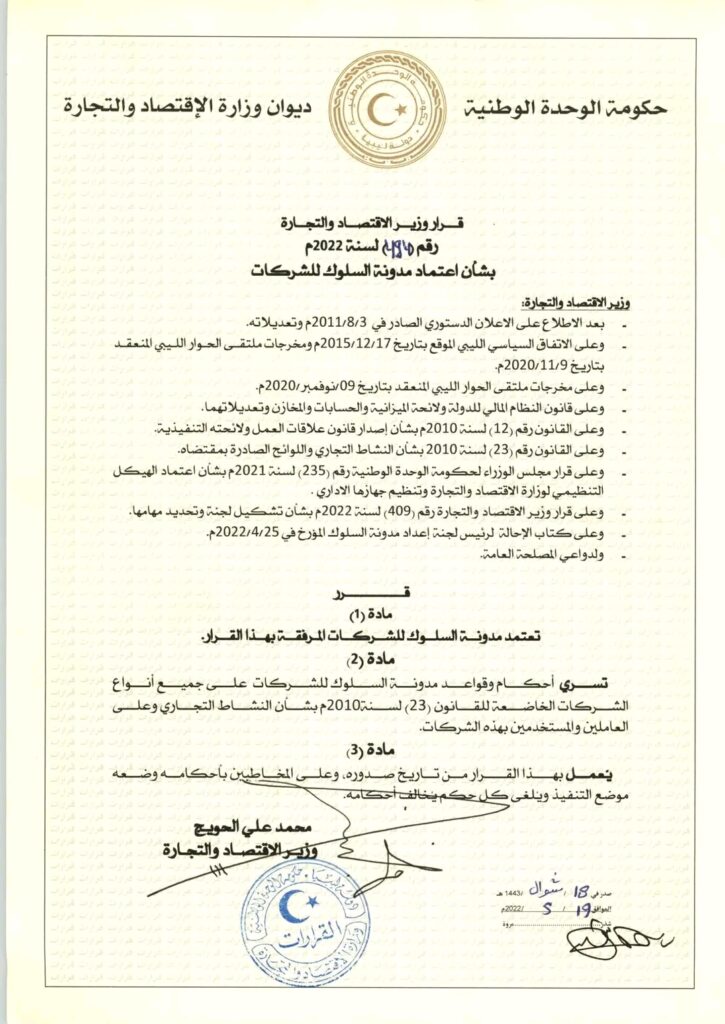 حكومة الوحدة الوطنية
ديوان وزارة الإقتصاد والتجارة
حكومة الوحدة الوطنية
دولة ليبيا
قـــرار وزيـر الاقـتـصـاد والتجـارة
رقم لسنة 2022م
بشأن اعتماد مدونة السلوك للشركات
وزير الاقتصاد والتجارة:
- بعد الاطلاع على الاعلان الدستوري الصادر في 2011/8/3م وتعديلاته.
- وعلى الاتفاق السياسي الليبي الموقع بتاريخ 2015/12/17م ومخرجات ملتقى الحوار الليبي المنعقد
بتاريخ 2020/11/9م.
- وعلى مخرجات ملتقى الحوار الليبي المنعقد بتاريخ 09/نوفمبر/2020م.
- وعلى قانون النظام المالي للدولة ولائحة الميزانية والحسابات والمخازن وتعديلاتهما.
- وعلى القانون رقم (12) لسنة 2010م بشأن إصدار قانون علاقات العمل ولائحته التنفيذية.
- وعلى القانون رقم (23) لسنة 2010 بشأن النشاط التجاري واللوائح الصادرة بمقتضاه.
- وعلى قرار مجلس الوزراء لحكومة الوحدة الوطنية رقم (235) لسنة 2021م بشأن اعتماد الهيكل
التنظيمي لوزارة الاقتصاد والتجارة وتنظيم جهازها الاداري .
- وعلى قرار وزير الاقتصاد والتجارة رقم (409) لسنة 2022م بشأن تشكيل لجنة وتحديد مهامها.
- وعلى كتاب الإحالة لرئيس لجنة إعداد مدونة السلوك المؤرخ في 2022/4/25م.
- ولدواعي المصلحة العامة.
قـــــــرر
مادة (1)
تعتمد مدونة السلوك للشركات المرفقة بهذا القرار.
مادة (2)
تسري أحكام وقواعد مدونة السلوك للشركات على جميع أنواع
الشركات الخاضعة للقانون (23) لسنة2010م بشأن النشاط التجاري وعلى
العاملين والمستخدمين بهذه الشركات.
مادة (3)
يُعمل بهذا القرار من تاريخ صدوره، وعلى المخاطبين بأحكامه وضعه
موضع التنفيذ ويلغى كل حكم يخالف أحكامه.
محمد علي الحويج
وزير الاقتصاد والتجارة
القرارات
وزارة الاقتصاد والتجارة
صدر في 18 / شوال /1443 هـ
الموافق 19 / 5 /2022م